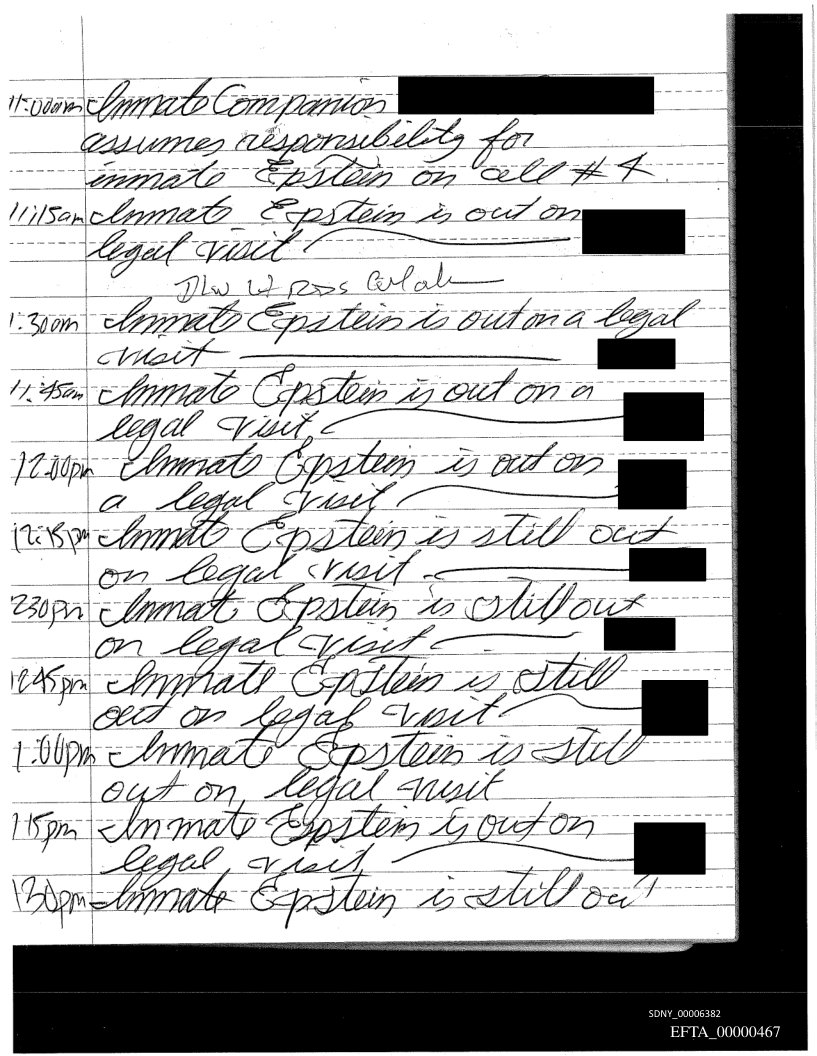 11:00am Inmate Companion
assumes responsibility for
inmate Epstein on cell # 4.
11:15am Inmate Epstein is out on
legal visit
1:30am Inmate Epstein is out on a legal
visit
11:45am Inmate Epstein is out on a
legal visit
12:00pm Inmate Epstein is out on
a legal visit
12:15pm Inmate Epstein is still out
on legal visit
230pm Inmat Epstein is still out
on legal visit
1245pm Inmate Epstein is still
out on legal visit
1:00pm Inmate Epstein is still
out on legal visit
115pm Inmate Epstein is out on
legal visit
130pm Inmate Epstein is still out
SDNY_00006382
EFTA_00000467